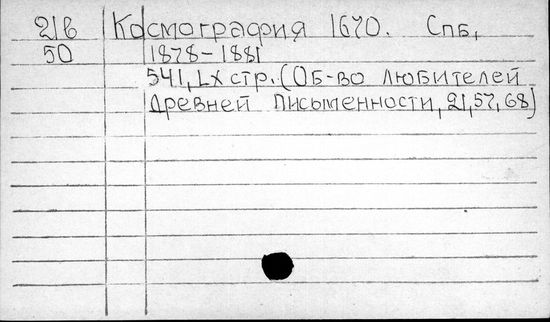 21в Космография 1670. Спб,
50 1878-1881
541, LX стр. (Об-во любителей
древней письменности, 21, 57, 68)